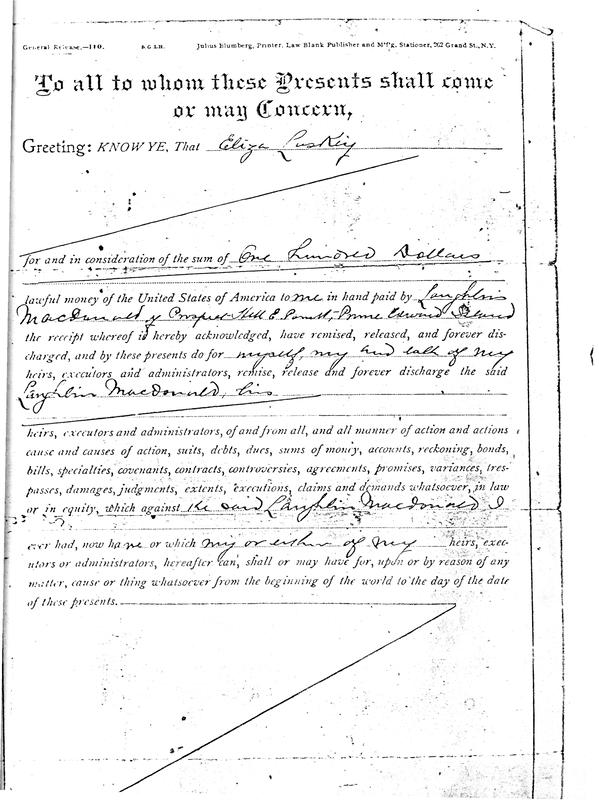 General Release,—110. B G L B. Julius Blumberg, Printer, Law Blank Publisher and M'f'g. Stationer, 262 Grand St., N.Y.
To all to whom these Presents shall come
or may Concern,
Greeting: KNOW YE, That Eliza Luskey
for and in consideration of the sum of One Hundred Dollars
lawful money of the United States of America to me in hand paid by Laughlin
MacDonald of Prospect Hill E. Prince Edward Island
the receipt whereof is hereby acknowledged, have remised, released, and forever dis-
charged, and by these presents do for myself, my and each of my
heirs, executors and administrators, remise, release and forever discharge the said
Laughlin MacDonald, his
heirs, executors and administrators, of and from all, and all manner of action and actions
cause and causes of action, suits, debts, dues, sums of money, accounts, reckoning, bonds,
bills, specialties, covenants, contracts, controversies, agreements, promises, variances, tres-
passes, damages, judgments, extents, executions, claims and demands whatsoever, in law
or in equity, which against the said Laughlin Macdonald I
ever had, now have or which my or either of my heirs, exec-
utors or administrators, hereafter can, shall or may have for, upon or by reason of any
matter, cause or thing whatsoever from the beginning of the world to the day of the date
of these presents.